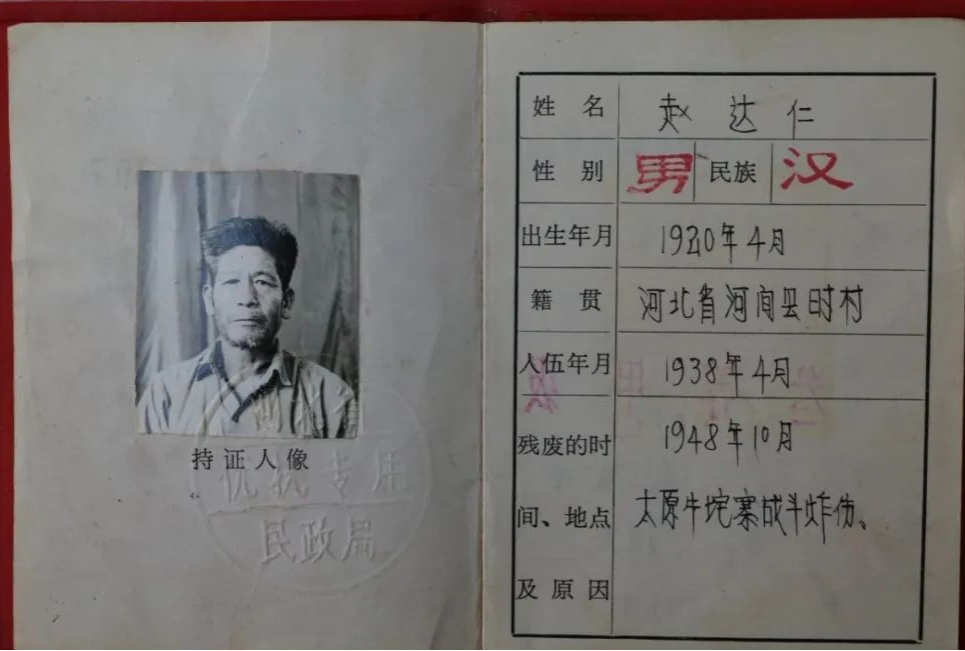 持证人像
河北省
优抚专用
民政局
姓 名 赵达仁
性 别 男 民族 汉
出生年月 1920年4月
籍 贯 河北省河间县时村
入伍年月 1938年4月
残废的时 1948年10月
间、地点 太原牛坨寨战斗炸伤、
及原因